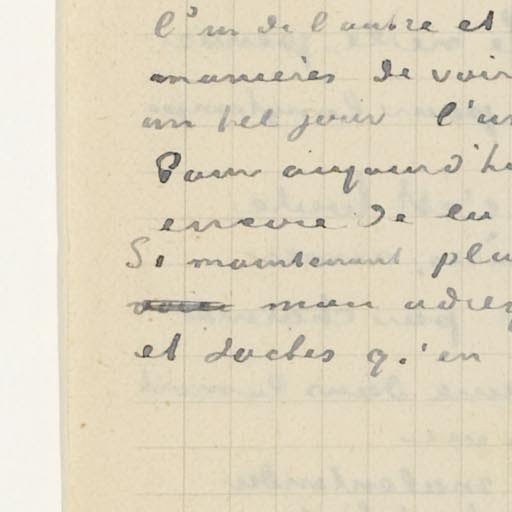 l'un de l'autre et
manieres de voir
un tel jour l'un
Pour aujourd'hu
encore de la
Si maintenant plu
mon adres
et saches q.'en